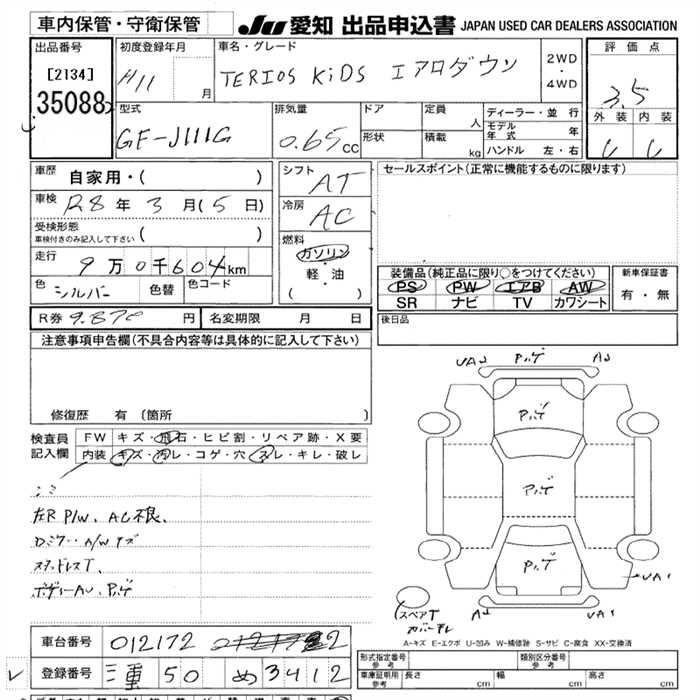 車内保管・守衛保管
JU 愛知 出品申込書 JAPAN USED CAR DEALERS ASSOCIATION
出品番号
[2134]
35088
初度登録年月
H11 月
車名・グレード
TERIOS KiDS エアロダウン
2WD
・
4WD
評価点
3.5
外装 内装
型式
GF-J111G
排気量
0.65cc
ドア
形状
定員 人
積載 kg
ディーラー・並行
モデル年式 年
ハンドル 左・右
車歴
自家用・( )
車検 R8年3月(5日)
受検形態
車検付きのみ記入して下さい ( )
走行
9万0千604km
色 シルバー 色替 色コード
シフト
AT
冷房
AC
燃料
ガソリン
・
軽・油
( )
セールスポイント(正常に機能するものに限ります)
装備品(純正品に限り○をつけてください)
PS PW エアB AW
SR ナビ TV カワシート
新車保証書
有・無
R券 9.870円 名変期限 月 日
後日品
注意事項申告欄(不具合内容等は具体的に記入して下さい)
修復歴 有(箇所
検査員
記入欄
FW キズ・飛石・ヒビ割・リペア跡・X要
内装 キズ・汚レ・コゲ・穴・スレ・キレ・破レ
左R P/W、AC不良、
Dミラー A/Wキズ
スタッドレスT、
ボディーAU、P.ハゲ
UA1 P.ハゲ A1
P.ハゲ
P.ハゲ
P.ハゲ
UA1
スペアT
カバーキレ
A1 UA1
A-キズ E-エクボ U-凹み W-補修跡 S-サビ C-腐食 XX-交換済
車台番号 012172
登録番号 三重 50 め 3412
形式指定番号
参考
類別区分番号
参考
車庫証明用
参考
長さ cm 幅 cm 高さ cm